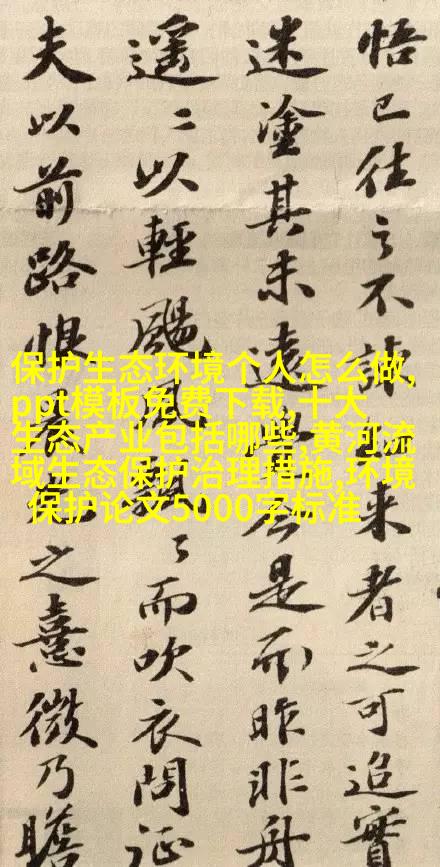 悟已往之不諫来者之可追實
迷塗其未遠覺今是而昨非舟
遥〻以輕颺風飄〻而吹衣問征
夫以前路恨之熹微乃瞻
保护生态环境个人怎么做,
ppt模板免费下载,十大
生态产业包括哪些,黄河流
域生态保护治理措施,环境
保护论文5000字标准